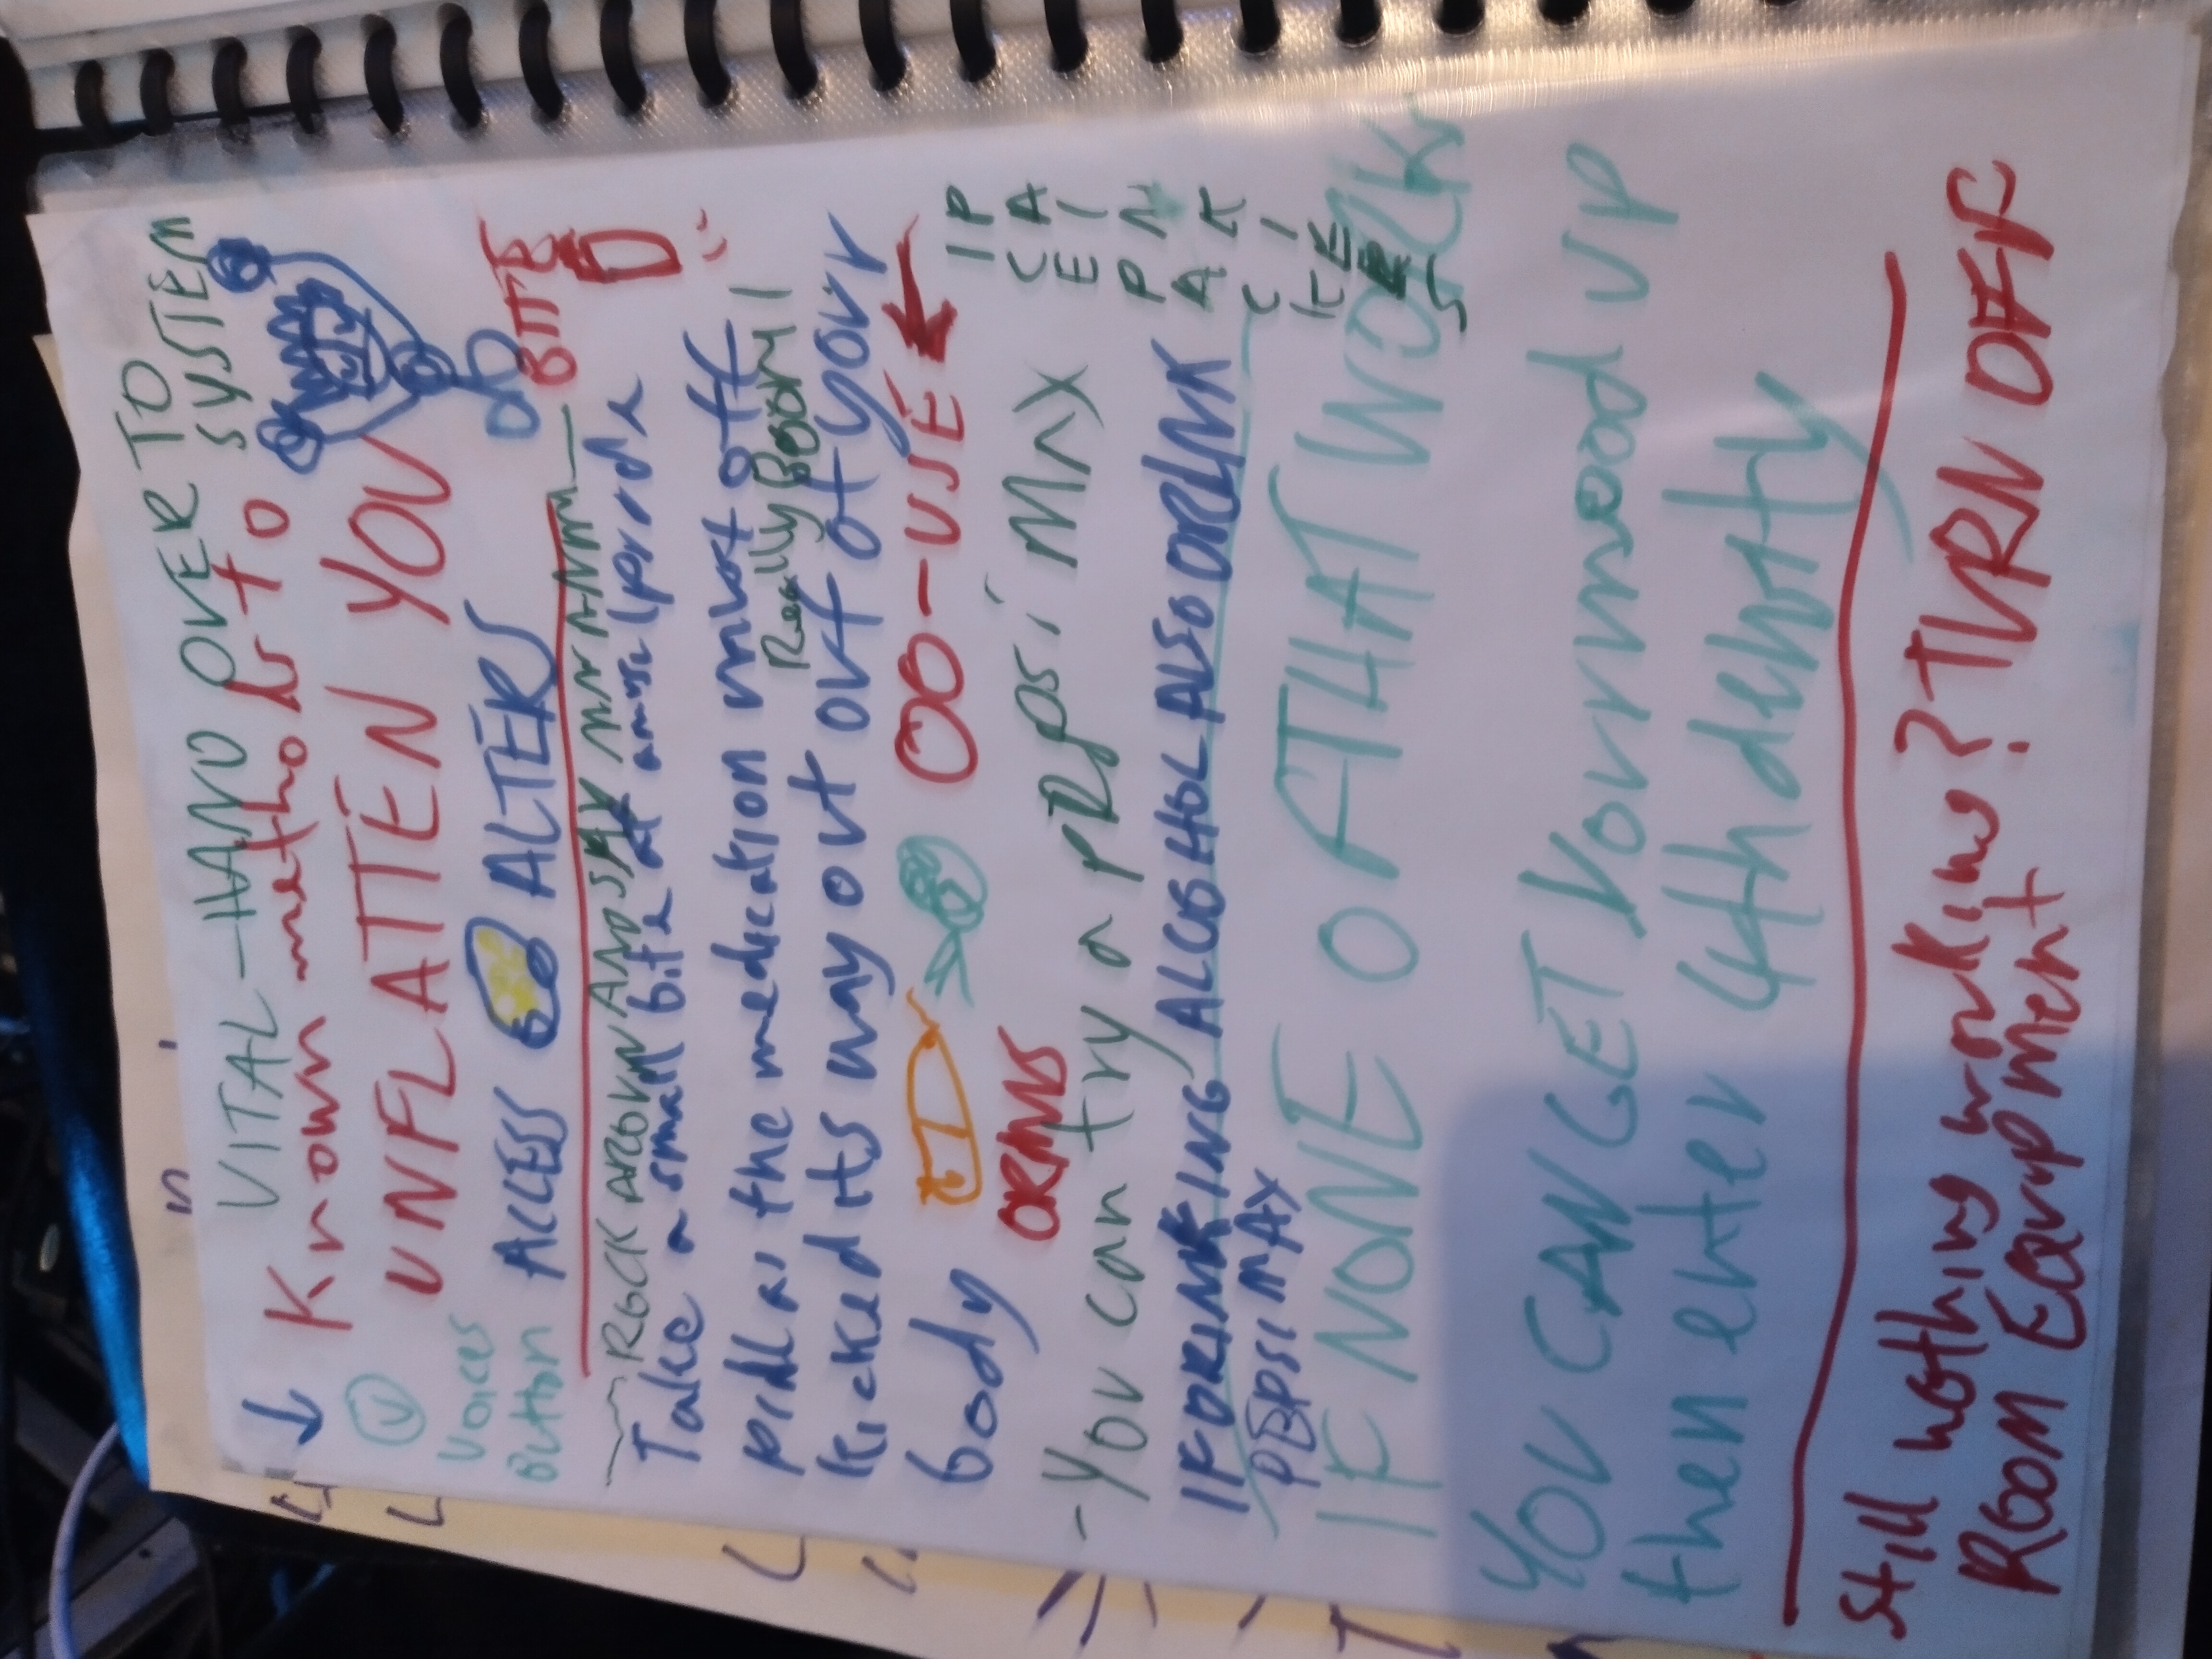 VITAL - HAND OVER TO SYSTEM
Known methods to
UNFLATTEN YOU
V
Voices
Button
ACCESS ALTERS
BITE
ROCK AROUND AND SAY
Take a small bite of
pill as the medication most of
Really Boomy!
kicked its way out out of your
body
OO-USE
ORMS
- You can try a PEPSI MAX
IF DRINKING ALCOHOL ALSO DRINK
PEPSI MAX
IP
CA
EI
PN
AK
CI
KE
ER
S
IF NONE OF THAT WORKS
YOU CAN GET Vormood UP
then enter 4thdenoty
Still nothing working? TURN OFF
ROOM Equipment